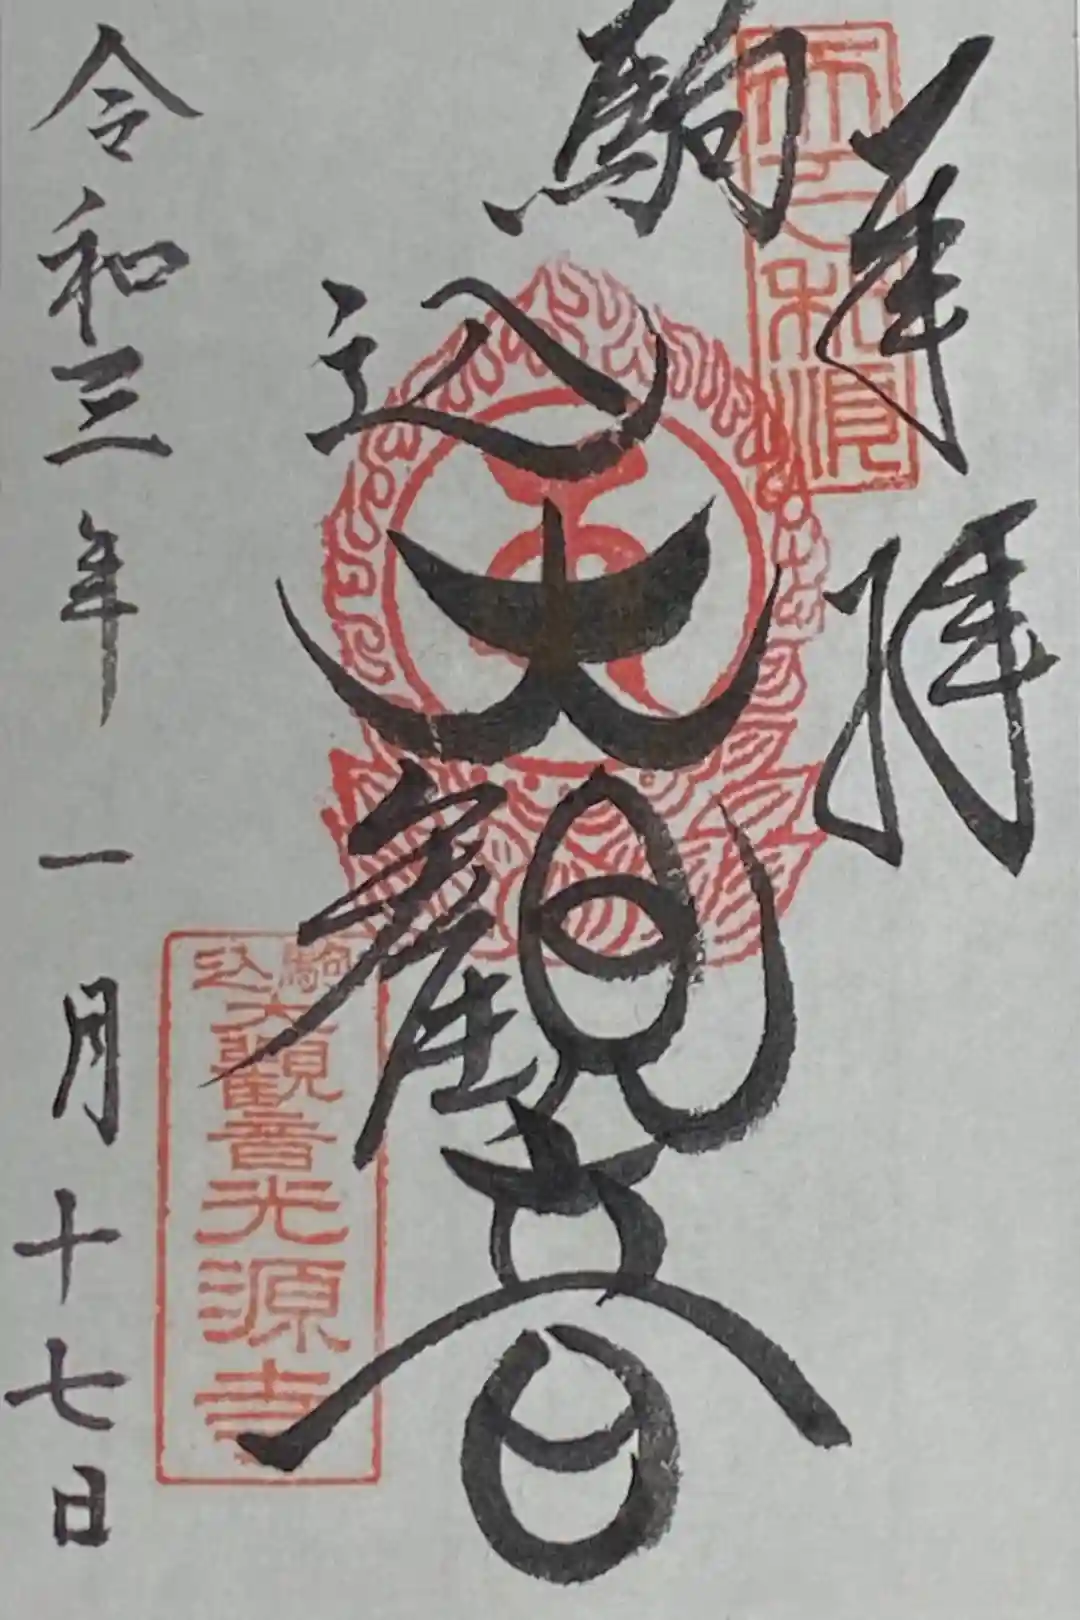 奉拝
天下和順
駒込
大觀音
駒込
大観音光源寺
令和三年一月十七日